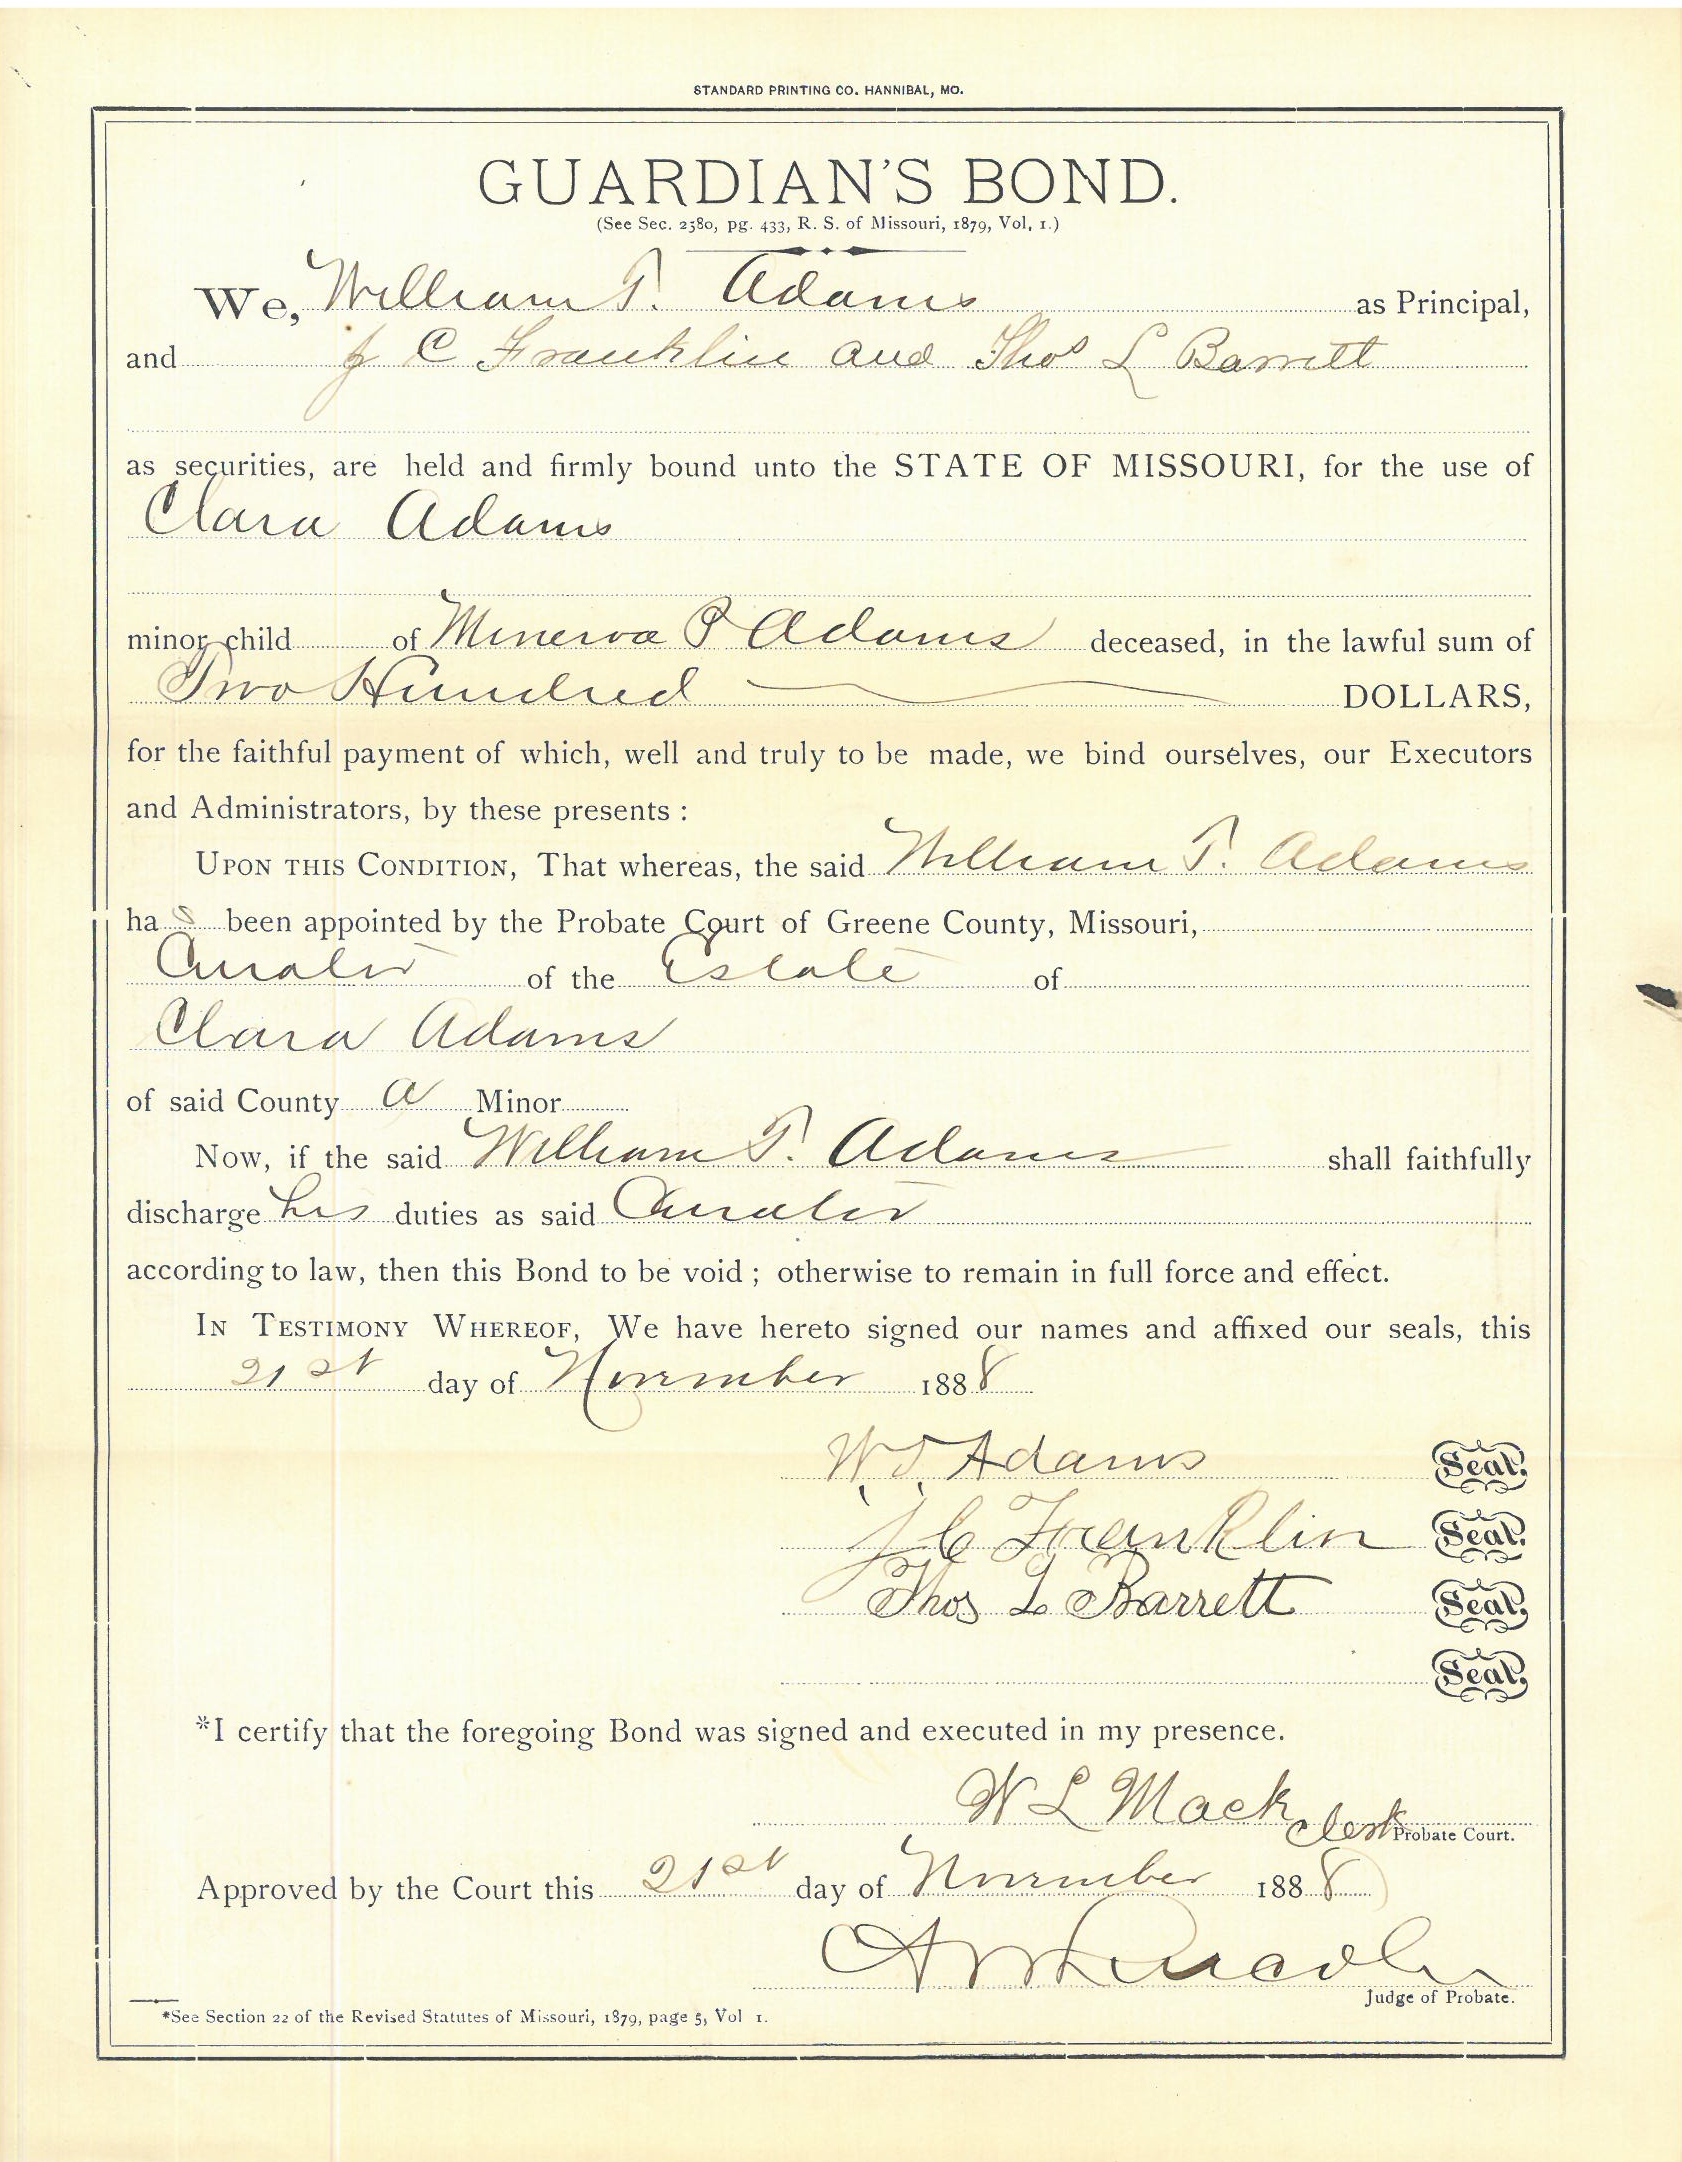 STANDARD PRINTING CO. HANNIBAL, MO.
GUARDIAN'S BOND.
(See Sec. 2580, pg. 433, R. S. of Missouri, 1879, Vol, 1.)
We, William T. Adams as Principal,
and J C Franklin and Thos L Barrett
as securities, are held and firmly bound unto the STATE OF MISSOURI, for the use of
Clara Adams
minor child of Minerva P Adams deceased, in the lawful sum of
Two Hundred DOLLARS,
for the faithful payment of which, well and truly to be made, we bind ourselves, our Executors
and Administrators, by these presents :
UPON THIS CONDITION, That whereas, the said William T. Adams
ha s been appointed by the Probate Court of Greene County, Missouri,
Curator of the Estate of
Clara Adams
of said County a Minor
Now, if the said William T. Adams shall faithfully
discharge his duties as said Curator
according to law, then this Bond to be void ; otherwise to remain in full force and effect.
IN TESTIMONY WHEREOF, We have hereto signed our names and affixed our seals, this
21st day of November 1888
W. T. Adams Seal.
J C Franklin Seal.
Thos L Barrett Seal.
Seal.
*I certify that the foregoing Bond was signed and executed in my presence.
W L Mack Clerk Probate Court.
Approved by the Court this 21st day of November 1888
Lincoln
Judge of Probate.
*See Section 22 of the Revised Statutes of Missouri, 1879, page 5, Vol 1.